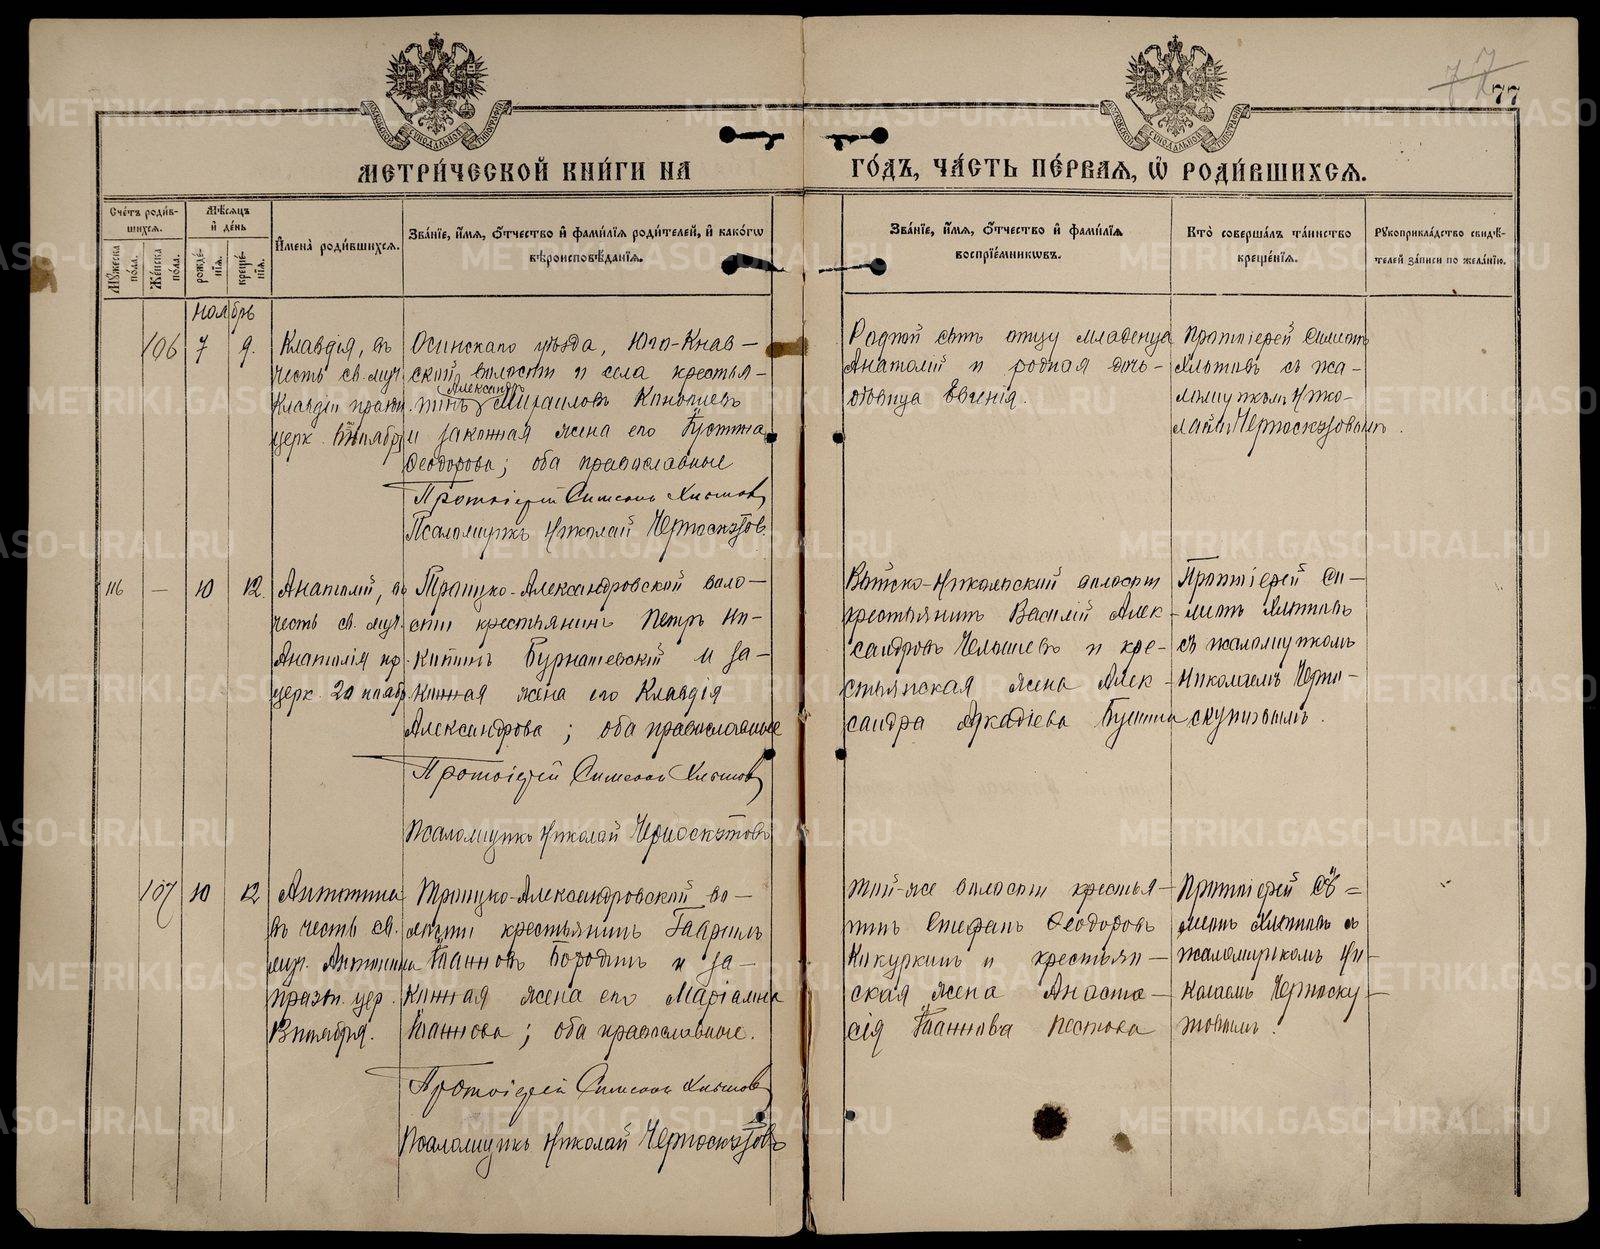 77
77
МЕТРИ́ЧЕСКОЙ КНИ́ГИ НА ГО́ДЪ, ЧА́СТЬ ПЕ́РВАѦ, Ѡ҆ РОДИ́ВШИХСѦ.
Сче́тъ роди́в-
шихсѧ.
Мꙋ́жеска по́ла.
Же́нска по́ла.
Мѣ́сѧцъ и҆ де́нь
рожде́-
нїѧ.
креще́-
нїѧ.
И҆мена̀ роди́вшихсѧ.
Зва́нїе, и҆́мѧ, о҆́тчество и҆ фами́лїѧ роди́телей, и҆ како́гѡ
вѣроисповѣ́данїѧ.
Зва́нїе, и҆́мѧ, о҆́тчество и҆ фами́лїѧ
воспрїе́мникѡвъ.
Кто̀ соверша́лъ та́инство
креще́нїѧ.
Рꙋкоприкла́дство свидѣ́-
телей за́писи по жела́нїю.
ноябрь
106
7
9.
Клавдія, въ
честь св. муч.
Клавдіи празн.
церк. 6 ноября
Осинскаго уѣзда, Юго-Кнав-
ской волости и села крестья-
нинъ Александръ Михаиловъ
и законная жена его Іустина
Ѳеодорова; оба православные
Протоіерей Симеонъ Хлыновъ
Псаломщикъ Николай Черноскутовъ.
Родной братъ отцу младенца
Анатолій и родная дочь-
отовица Евгенія.
Протоіерей Симеонъ
Хлыновъ съ пса-
ломщикомъ Нико-
лаемъ Черноскутовымъ.
116
—
10
12.
Анатолій, въ
честь св. муч.
Анатолія пр.
церк. 20 ноябр.
Троицко-Александровской воло-
сти крестьянинъ Петръ Ни-
китинъ и за-
конная жена его Клавдія
Александрова; оба православные
Протоіерей Симеонъ Хлыновъ
Псаломщикъ Николай Черноскутовъ
Николаьской волости
крестьянинъ Василій Алек-
сандровъ Челышевъ и кре-
стьянская жена Алек-
сандра Аркадіева
Протоіерей Си-
меонъ Хлыновъ
съ псаломщикомъ
Николаемъ Черно-
скутовымъ.
107
10
12
Антонина
въ честь св.
муч. Антонины
празн. цер.
13 ноября.
Троицко-Александровской во-
лости крестьянинъ Гавріилъ
Іоанновъ Бородинъ и за-
конная жена его Маріамна
Іоаннова; оба православные.
Протоіерей Симеонъ Хлыновъ
Псаломщикъ Николай Черноскутовъ
той-же волости крестья-
нинъ Стефанъ Ѳеодоровъ
Кикуркинъ и крестьян-
ская жена Анаста-
сія Іоаннова Пестова
Протоіерей Си-
меонъ Хлыновъ съ
псаломщикомъ Ни-
колаемъ Черноску-
товымъ.
METRIKI.GASO-URAL.RU